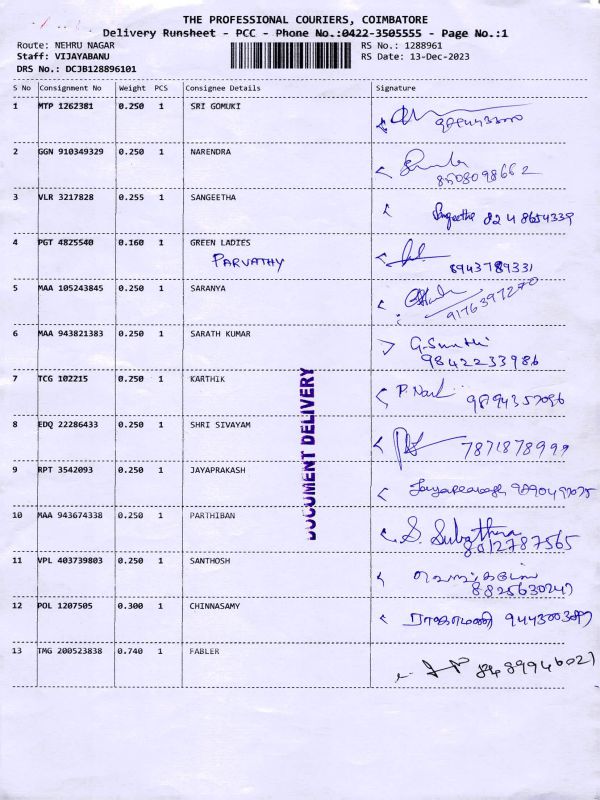 THE PROFESSIONAL COURIERS, COIMBATORE
Delivery Runsheet - PCC - Phone No.:0422-3505555 - Page No.:1
Route: NEHRU NAGAR RS No.: 1288961
Staff: VIJAYABANU RS Date: 13-Dec-2023
DRS No.: DCJB128896101
S No Consignment No Weight PCS Consignee Details Signature
1 MTP 1262381 0.250 1 SRI GOMUKI
2 GGN 910349329 0.250 1 NARENDRA
8508098662
3 VLR 3217828 0.255 1 SANGEETHA
Sangeetha 82 4 8654339
4 PGT 4825540 0.160 1 GREEN LADIES
PARVATHY 8943789331
5 MAA 105243845 0.250 1 SARANYA
9176397270
6 MAA 943821383 0.250 1 SARATH KUMAR
9842233986
7 TCG 102215 0.250 1 KARTHIK
9894357096
8 EDQ 22286433 0.250 1 SHRI SIVAYAM
7871878999
9 RPT 3542093 0.250 1 JAYAPRAKASH
Jayaprakash
10 MAA 943674338 0.250 1 PARTHIBAN
S. Subathra
8012787565
11 VPL 403739803 0.250 1 SANTHOSH
8825630247
12 POL 1207505 0.300 1 CHINNASAMY
13 TMG 200523838 0.740 1 FABLER
8489946027
DOCUMENT DELIVERY